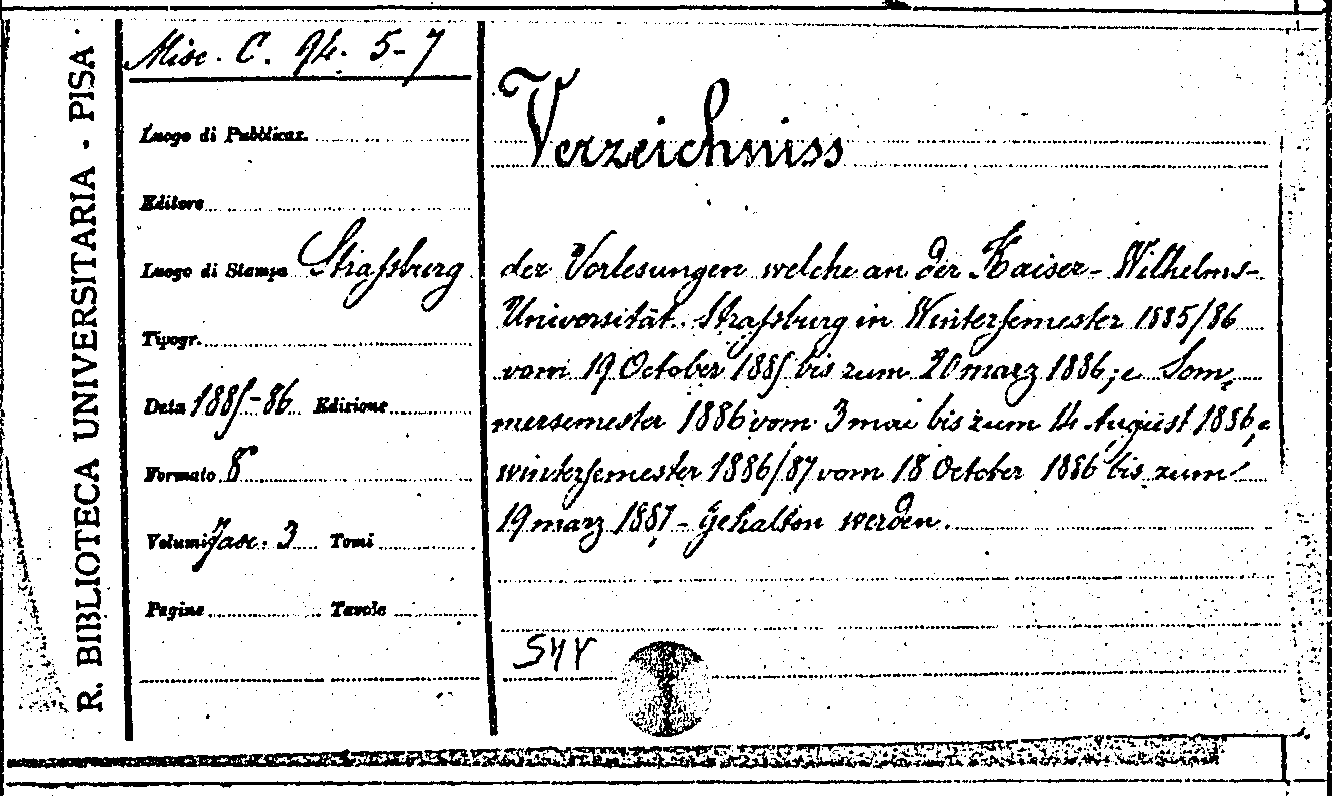 R. BIBLIOTECA UNIVERSITARIA - PISA
Misc. C. 94. 5-7
Luogo di Pubblicaz.
Editore
Luogo di Stampa Strassburg
Tipogr.
Data 1885-86 Edizione
Formato 8°
Volumi fasc. 3 Tomi
Pagine Tavole
Verzeichniss
der Vorlesungen welche an der Kaiser-Wilhelms-
Universität Strassburg in Wintersemester 1885/86
vom 19 October 1885 bis zum 20 marz 1886; e Som-
mersemester 1886 vom 3 mai bis zum 14 August 1886, e
wintersemester 1886/87 vom 18 October 1886 bis zum
19 marz 1887 - gehalten werden.